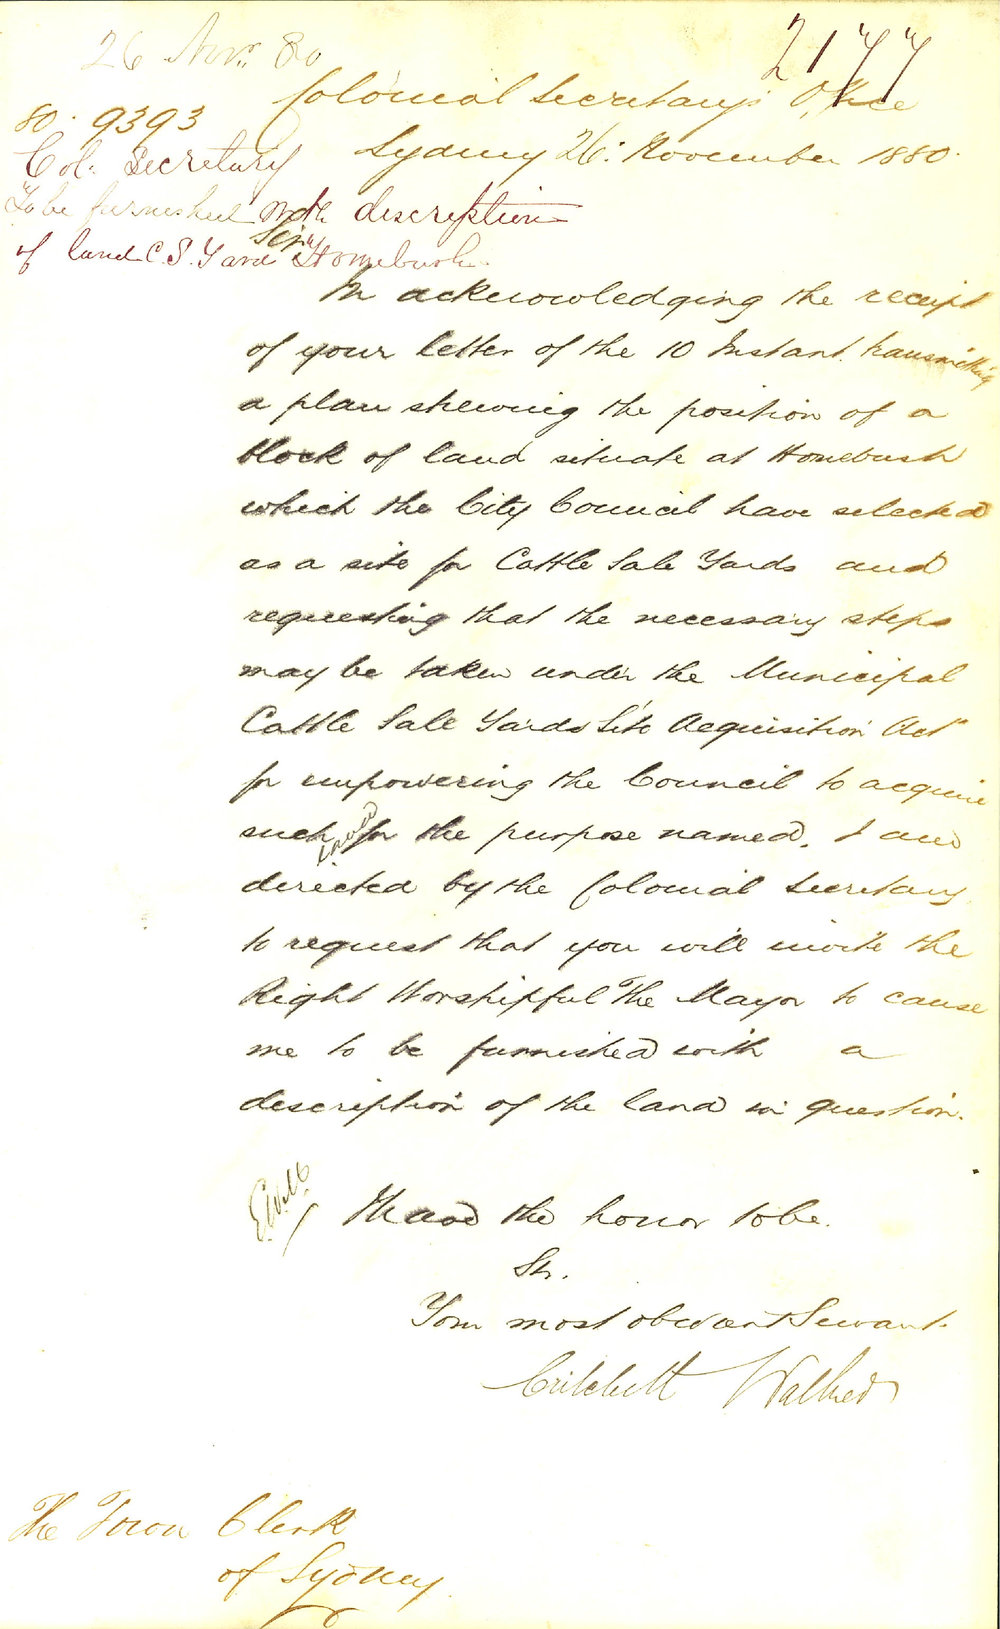 26 Novr. 80
2177
Colonial Secretary's Office
80. 9393
Sydney 26: November 1880.
Col. Secretary
To be furnished with description
of land C. S. Yard Homebush.
Sir,
In acknowledging the receipt
of your letter of the 10 Instant. transmitting
a plan shewing the position of a
block of land situate at Homebush
which the City Council have selected
as a site for Cattle Sale Yards and
requesting that the necessary steps
may be taken under the Municipal
Cattle Sale Yards Site Acquisition Act
for empowering the Council to acquire
such land for the purpose named, I am
directed by the Colonial Secretary
to request that you will invite the
Right Worshipful The Mayor to cause
me to be furnished with a
description of the land in question.
I have the honor to be.
Sir.
Your most obedient Servant.
Critchett Walker
The Town Clerk
of Sydney.